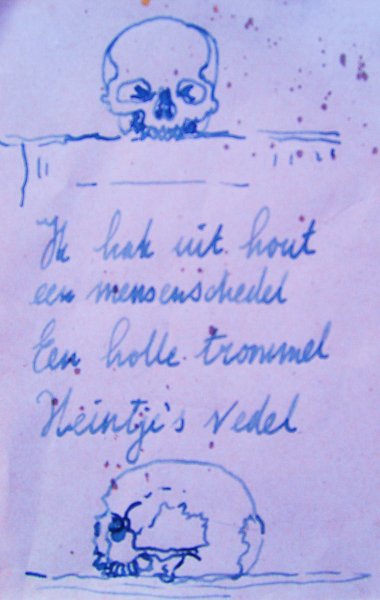 Ik hak uit hout
een mensenschedel
Een holle trommel
Heintje's vedel